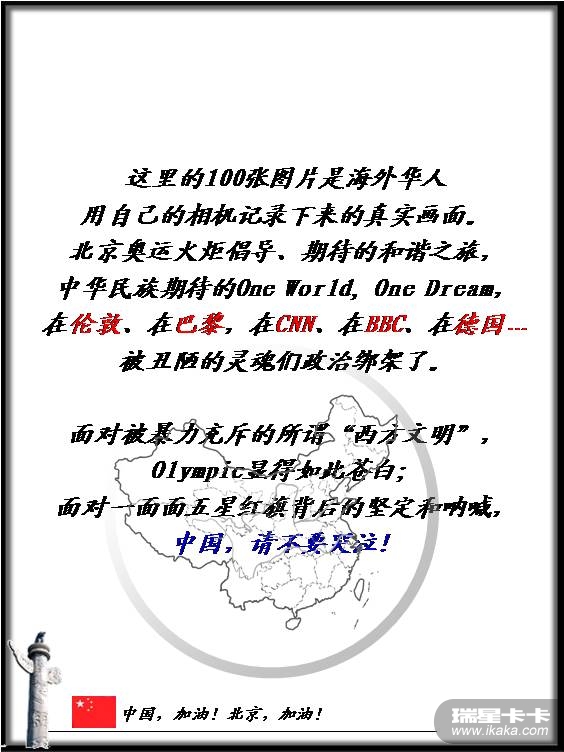 这里的100张图片是海外华人
用自己的相机记录下来的真实画面。
北京奥运火炬倡导、期待的和谐之旅，
中华民族期待的One World, One Dream，
在伦敦、在巴黎，在CNN、在BBC、在德国---
被丑陋的灵魂们政治绑架了。
面对被暴力充斥的所谓“西方文明”，
Olympic显得如此苍白；
面对一面面五星红旗背后的坚定和呐喊，
中国，请不要哭泣！
中国，加油！北京，加油！
瑞星卡卡
www.ikaka.com